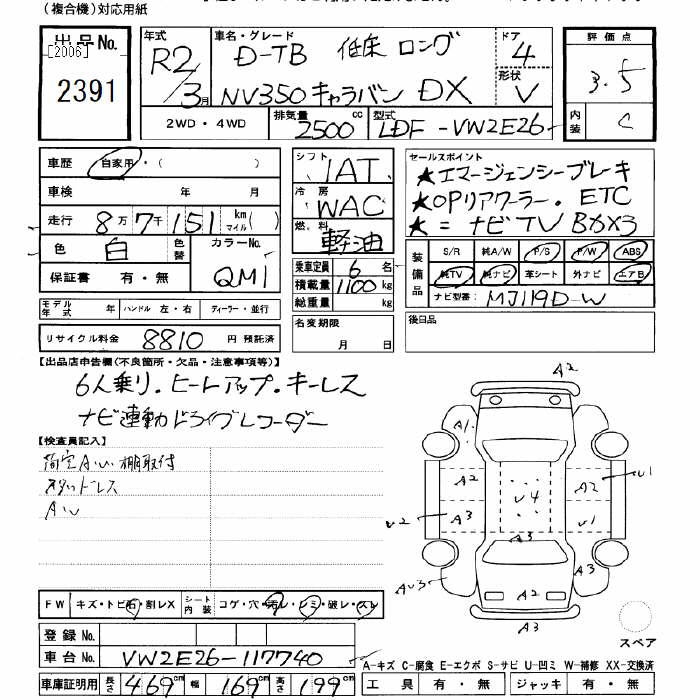 (複合機)対応用紙
出品No. [2006] 2391
年式 R2/3月
車名・グレード D-TB 低床 ロング
NV350キャラバン DX
ドア 4
形状 V
評価点 3.5
内装 C
2WD・4WD
排気量 2500cc
型式 LDF-VW2E26
車歴 自家用・( )
車検 年 月
走行 8万7千151 km マイル( )
色 白 色替 カラーNo. QM1
保証書 有・無
シフト IAT
冷房 WAC
燃料 軽油
乗車定員 6名
積載量 1100kg
総重量 kg
セールスポイント
★エマージェンシーブレーキ
★OPリアクーラー. ETC
★=ナビTV
装備品 S/R 純A/W P/S P/W ABS
純TV 純ナビ 革シート 外ナビ エアB
ナビ型番: MJ119D-W
モデル年式 年 ハンドル 左・右 ディーラー・並行
リサイクル料金 8810 円 預託済
名変期限 月 日
後日品
【出品店申告欄(不良箇所・欠品・注意事項等)】
6人乗り.ヒートアップ.キーレス
ナビ連動ドライブレコーダー
【検査員記入】
棚取付
スタッドレス
A2
A1
A2 A2 U1
U4
A3 U1
U2
A3
A2
A3
スペア
FW キズ・トビ石・割レX シート内装 コゲ・穴・汚レ・シミ・破レ・スレ
登録No.
車台No. VW2E26-117740
A-キズ C-腐食 E-エクボ S-サビ U-凹ミ W-補修 XX-交換済
車庫証明用 長さ 469cm 幅 169cm 高さ 199cm
工具 有・無 ジャッキ 有・無